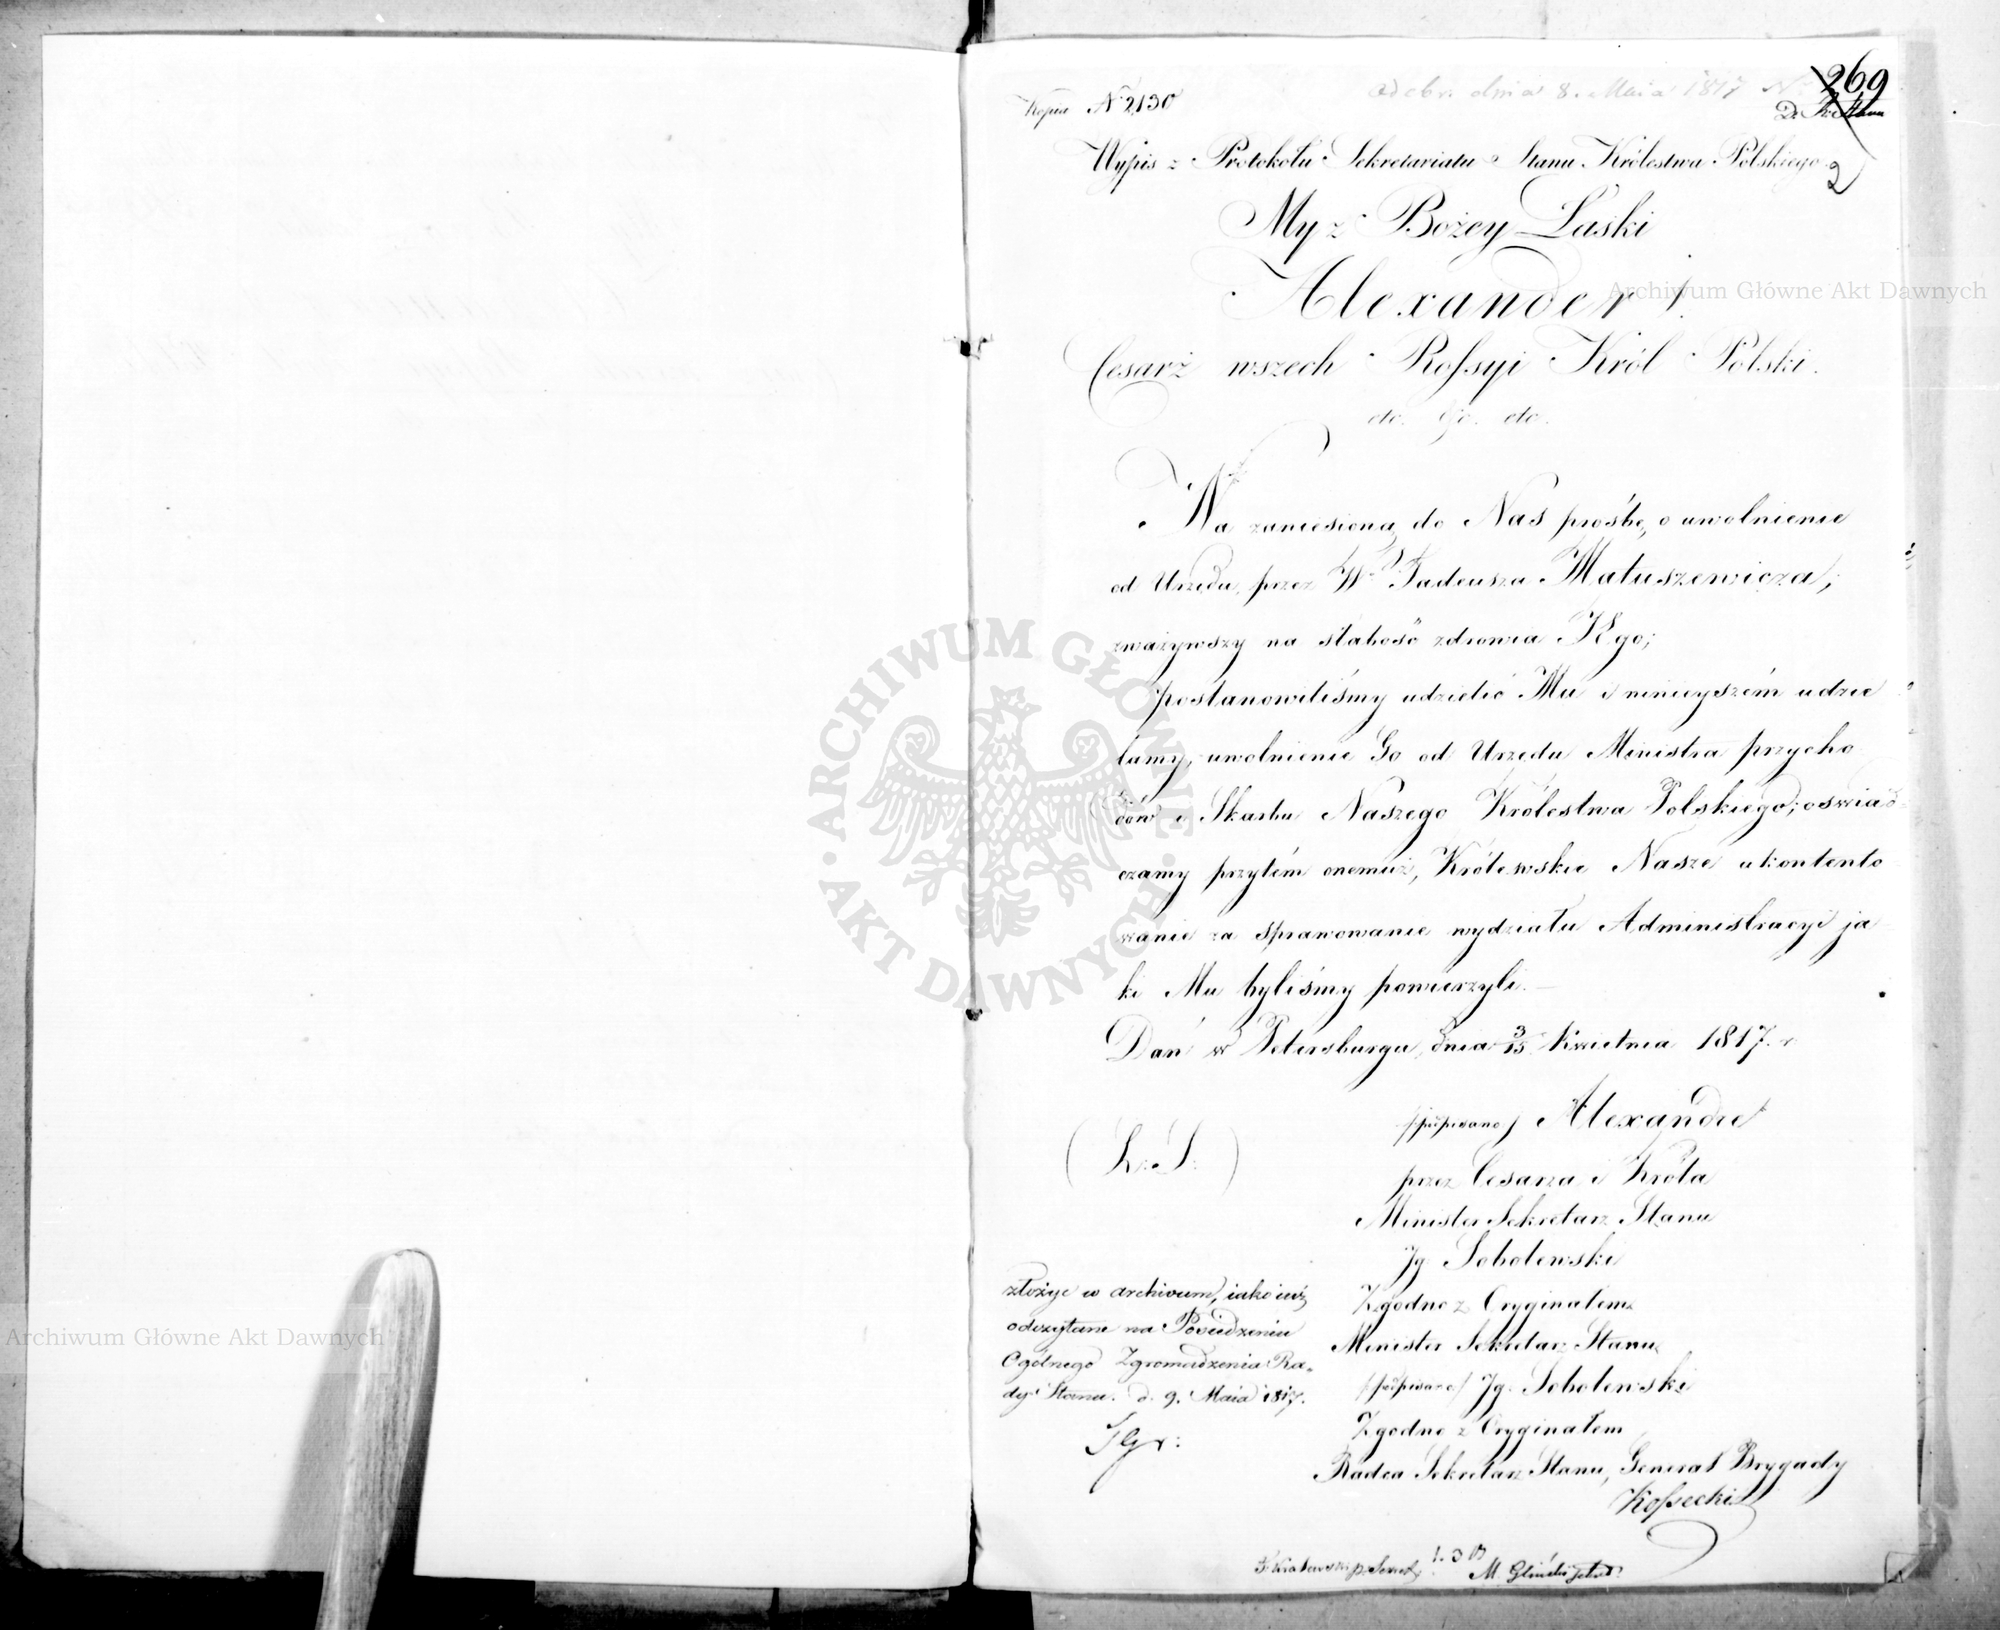 odebr. dnia 8. Maia 1817 N.
269
Kopia N. 2130
D. R. Stanu
Wypis z Protokołu Sekretariatu Stanu Królestwa Polskiego
2
My z Bożey Łaski
Alexander I.
Cesarż wszech Rossyi Król Polski.
etc. etc. etc.
Na zaniesioną do Nas prośbę, o uwolnienie
od Urzędu, przez Wo Tadeusza Matuszewicza,
zważywszy na słabość zdrowia Jego;
postanowiliśmy udzielić Mu i ninieyszém udzie
lamy, uwolnienie Go od Urzędu Ministra przycho
dów i Skarbu Naszego Królestwa Polskiego; oświad-
czamy przytém onemuż, Królewskie Nasze ukontento
wanie za sprawowanie wydziału Administracyi ja
ki Mu byliśmy powierzyli.—
Dan w Petersburgu, dnia 3/15 Kwietnia 1817. r.
(L. S.)
/podpisano/ Alexandre
przez Cesarza i Króla
Minister Sekretarz Stanu
Ig. Sobolewski
Zgodno z Oryginałem
Minister Sekretarz Stanu
/podpisano/ Ig. Sobolewski
Zgodno z Oryginałem
Radca Sekretarz Stanu, Generał Brygady
Kossecki
złożyć w archivum, iako iuż
odczytane na Posiedzeniu
Ogólnego Zgromadzenia Ra-
dy Stanu. d. 9. Maia 1817.
1. 3
M. Gliński
Archiwum Główne Akt Dawnych
Archiwum Główne Akt Dawnych
ARCHIWUM GŁÓWNE · AKT DAWNYCH ·